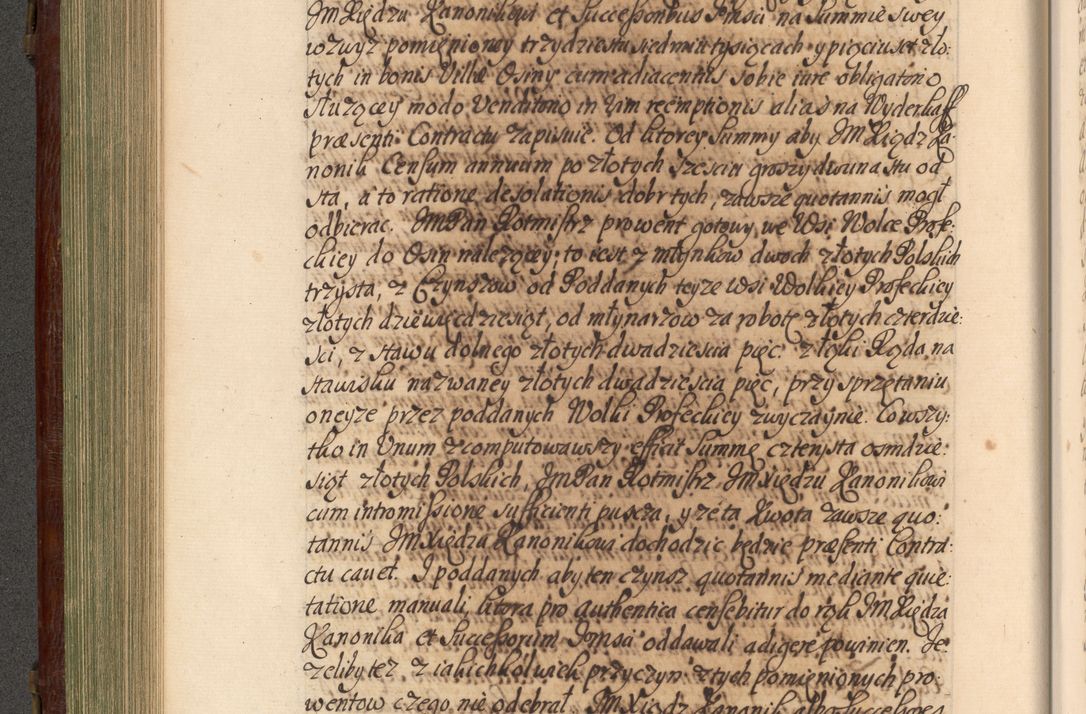 JM Xiędzu Kanonikowi et Successoribus Jmsci na Summie swey
wzwyż pomienioney trzydziestu siedmiu tysięcach y pięciuset zło:
tych in bonis Villæ Osiny cum adiacentiis sobie iure obligatorio
służącey modo venditorio in vim reemptionis alias na Wyderkaff
præsenti Contractu zapisuie. Od ktorey Summy aby JM Xiądz Ka:
nonik Censum annuum po złotych szesciu groszy dwunastu od
sta, a to ratione desolationis dobr tych, zawsze quotannis mogł
odbierac. JMPan Rotmistrz prowent gotowy we Wsi Wolce Profe:
ckiey do Osin należącey, to iest z młynkow dwoch złotych Polskich
trzysta, z Czynszow od Poddanych teyze wsi Wolkiey Profeckiey
złotych dziewięcdziesiąt, od młynarzow za robotę złotych czterdzie:
sci, z stawu dolnego złotych dwadziescia pięc, z łąki Rządа na
stawisku nazwaney złotych dwadziescia pięc, przy sprzętaniu
oneyze przez poddanych Wolki Profeckiey zwyczaynie. Co wszy:
tko in Unum zcomputowawszy efficit Summę czterysta osmdzie:
siąt złotych Polskich, JmPan Rotmistrz JmXiędzu Kanonikowi
cum intromissione sufficienti puszcza, y ze ta Kwota zawsze quo:
tannis JmXiędzu Kanonikowi dochodzic będzie præsenti Contra:
ctu cavet. I poddanych aby ten czynsz quotannis mediante quie:
tatione manuali, ktora pro authentica censebitur do rąk JM Xiędza
Kanonika et Successorum Jmsci oddawali adigere powinien. Je:
zeliby tez, z iakichkolwiek przyczyn z tych pomienionych pro:
wentow czego nie odebrał JM Xiądz Kanonik albo Successores